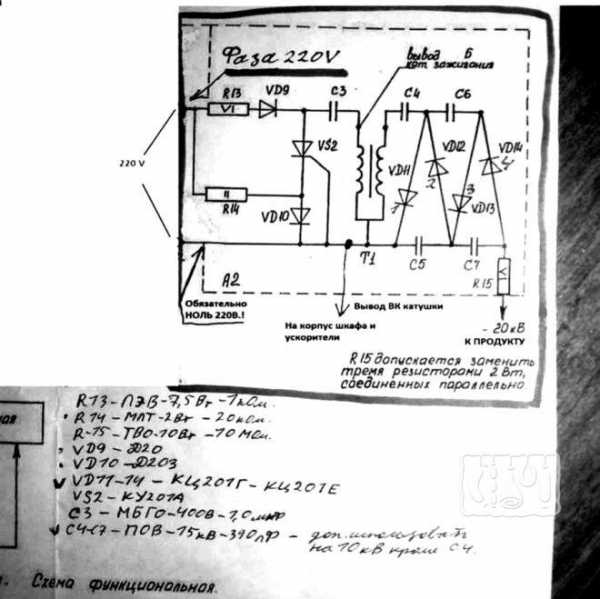 Фаза 220V
вывод Б
кат. зажигания
R13
VI
VD9
C3
C4
C6
VS2
220 V
VD11
VD12
VD14
1
2
3
4
II
R14
VD10
VD13
A2
T1
C5
C7
V
R15
Обязательно
НОЛЬ 220В.!
Вывод ВК катушки
На корпус шкафа и
ускорители
- 20кВ
К ПРОДУКТУ
R15 допускается заменить
тремя резисторами 2 Вт,
соединенных параллельно
ная
R13 - ПЭВ - 7,5Вт - 1 ком.
R14 - МЛТ - 2Вт - 20ком.
R-15 - ТВО-10Вт - 10 Мом.
VD9 - Д20
VD10 - Д203
VD11-14 - КЦ201Г - КЦ201Е
VS2 - КУ201А
C3 - МБГО-400В - 1,0 мкф
C4-C7 - ПОВ - 15кВ - 390пф - доп. использовать
на 10 кВ кроме C4.
Схема функциональная.